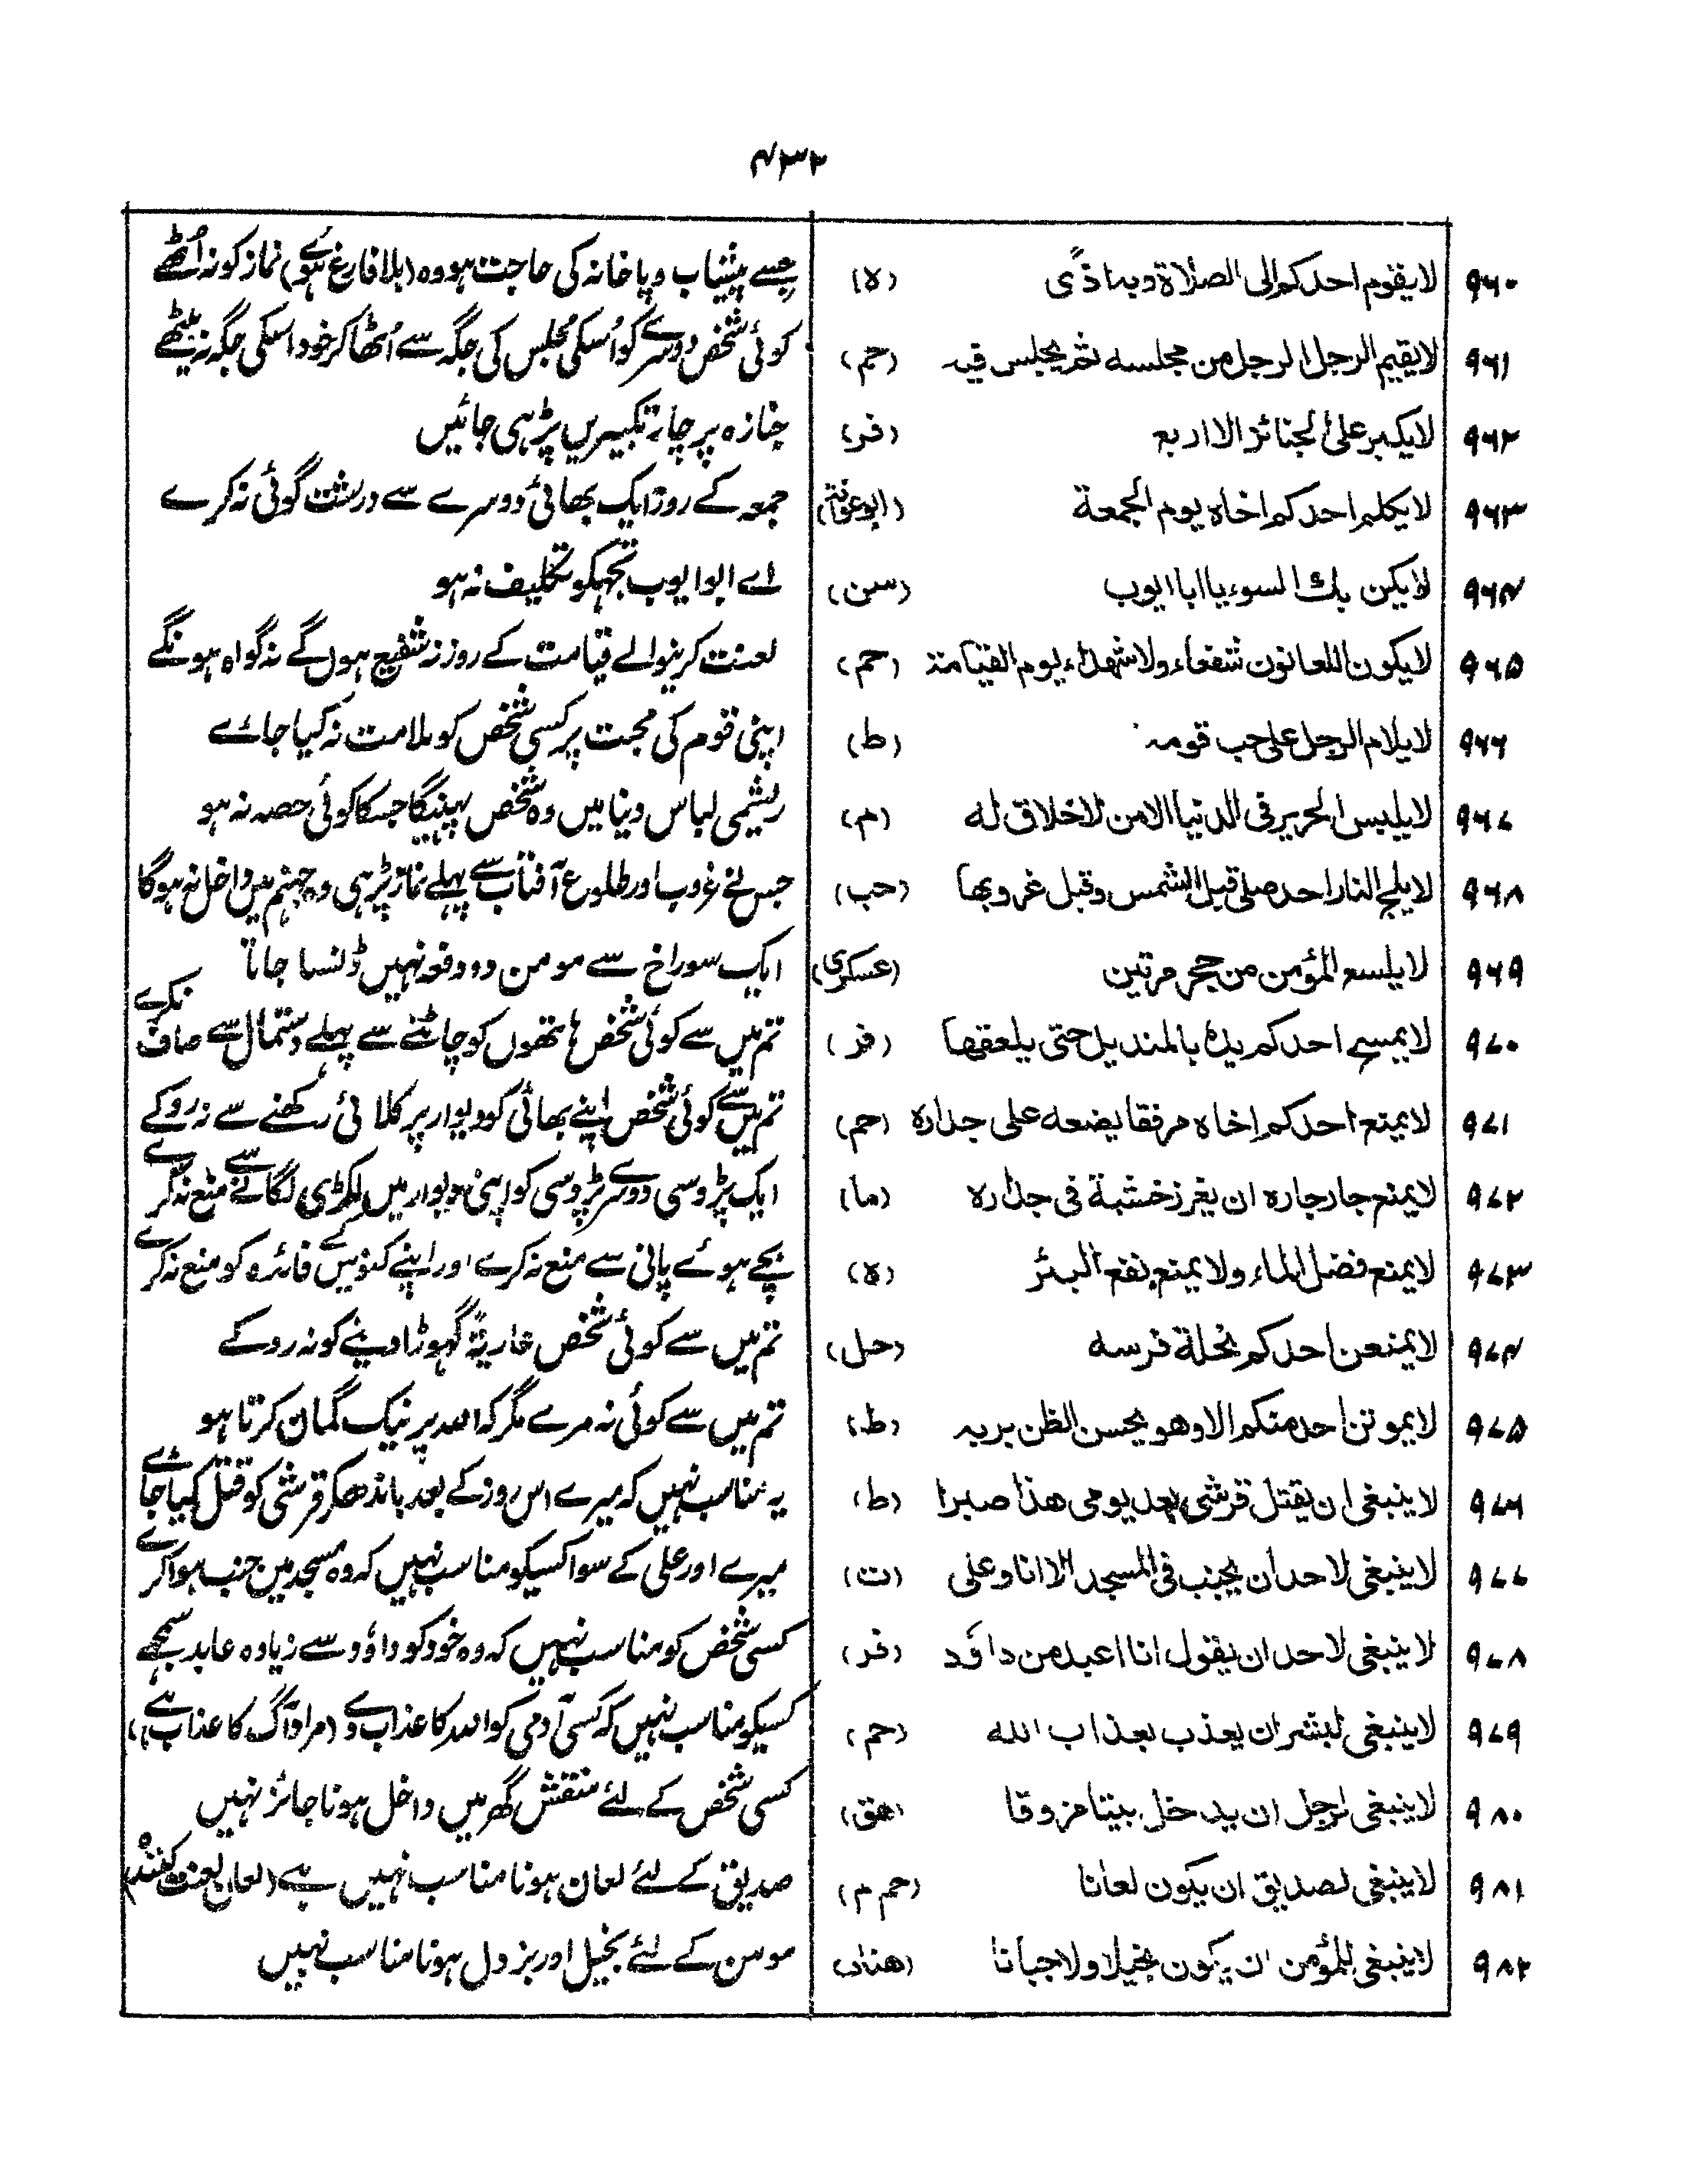 ۴۳۲
۹۶۰ لا یقوم احدکم الی الصلاة وبه اذًی (ہ) جسے پیشاب وپاخانہ کی حاجت ہو وہ (بلا فارغ ہوئے) نماز کو نہ اُٹھے
۹۶۱ لا یقیم الرجل الرجل من مجلسه ثم یجلس فیه (حم) کوئی شخص دوسرے کو اُسکی مجلس کی جگہ سے اُٹھا کر خود اسکی جگہ نہ بیٹھے
۹۶۲ لا یکبر علی الجنائز الا اربع (فر) جنازہ پر چار تکبیریں پڑہی جائیں
۹۶۳ لا یکلم احدکم اخاه یوم الجمعة (ابو عوانۃ) جمعہ کے روز ایک بھائی دوسرے سے درشت گوئی نہ کرے
۹۶۴ لا یکن بك السوء یا ابا ایوب (سن) اے ابو ایوب تجہکو تکلیف نہ ہو
۹۶۵ لا یکون اللعانون شفعاء ولا شهداء یوم القیامة (حم) لعنت کرنیوالے قیامت کے روز نہ شفیع ہوں گے نہ گواہ ہونگے
۹۶۶ لا یلام الرجل علی حب قومه (ط) اپنی قوم کی محبت پر کسی شخص کو ملامت نہ کیا جائے
۹۶۷ لا یلبس الحریر فی الدنیا الا من لا خلاق له (م) ریشمی لباس دنیا میں وہ شخص پہنیگا جسکا کوئی حصہ نہ ہو
۹۶۸ لا یلج النار احد صلی قبل الشمس وقبل غروبها (حب) جس نے غروب اور طلوع آفتاب سے پہلے نماز پڑہی وہ جہنم میں داخل نہ ہوگا
۹۶۹ لا یلسع المؤمن من حجر مرتین (عسکری) ایک سوراخ سے مومن دو دفعہ نہیں ڈنسا جاتا
۹۷۰ لا یمسح احدکم یده بالمندیل حتی یلعقها (فر) تم میں سے کوئی شخص ہاتھوں کو چاٹنے سے پہلے دستمال سے صاف نکرے
۹۷۱ لا یمنع احدکم اخاه مرفقا یضعه علی جداره (حم) تم میں سے کوئی شخص اپنے بھائی کو دیوار پر کلائی رکھنے سے نہ روکے
۹۷۲ لا یمنع جار جاره ان یغرز خشبة فی جداره (ما) ایک پڑوسی دوسرے پڑوسی کو اپنی دیوار میں لکڑی لگانے سے منع نہ کرے
۹۷۳ لا یمنع فضل الماء ولا یمنع نفع البئر (ہ) بچے ہوئے پانی سے منع نہ کرے اور اپنے کنوئیں کے فائدہ کو منع نہ کرے
۹۷۴ لا یمنعن احدکم نحلة فرسه (حل) تم میں سے کوئی شخص عاریۃً گہوڑا دینے کو نہ روکے
۹۷۵ لا یموتن احد منکم الا وهو یحسن الظن بربه (ط) تم میں سے کوئی نہ مرے مگر کہ اللہ پر نیک گمان کرتا ہو
۹۷۶ لا ینبغی ان یقتل قرشی بعد یومی هذا صبرا (ط) یہ مناسب نہیں کہ میرے اس روز کے بعد باندھکر قرشی کو قتل کیا جائے
۹۷۷ لا ینبغی لاحد ان یجنب فی المسجد الا انا وعلی (ت) میرے اور علی کے سوا کسیکو مناسب نہیں کہ وہ مسجد میں جنب ہوا کرے
۹۷۸ لا ینبغی لاحد ان یقول انا اعبد من داؤد (فر) کسی شخص کو مناسب نہیں کہ وہ خود کو داؤد سے زیادہ عابد سمجھے
۹۷۹ لا ینبغی لبشر ان یعذب بعذاب الله (حم) کسیکو مناسب نہیں کہ کسی آدمی کو اللہ کا عذاب دے (مراد آگ کا عذاب ہے)
۹۸۰ لا ینبغی لرجل ان یدخل بیتا مزوقا (هق) کسی شخص کے لئے منقش گھر میں داخل ہونا جائز نہیں
۹۸۱ لا ینبغی لصدیق ان یکون لعانا (حم م) صدیق کے لئے لعان ہونا مناسب نہیں ہے (لعان لعنت کنندہ)
۹۸۲ لا ینبغی للمؤمن ان یکون بخیلا ولا جبانا (هناد) مومن کے لئے بخیل اور بزدل ہونا مناسب نہیں